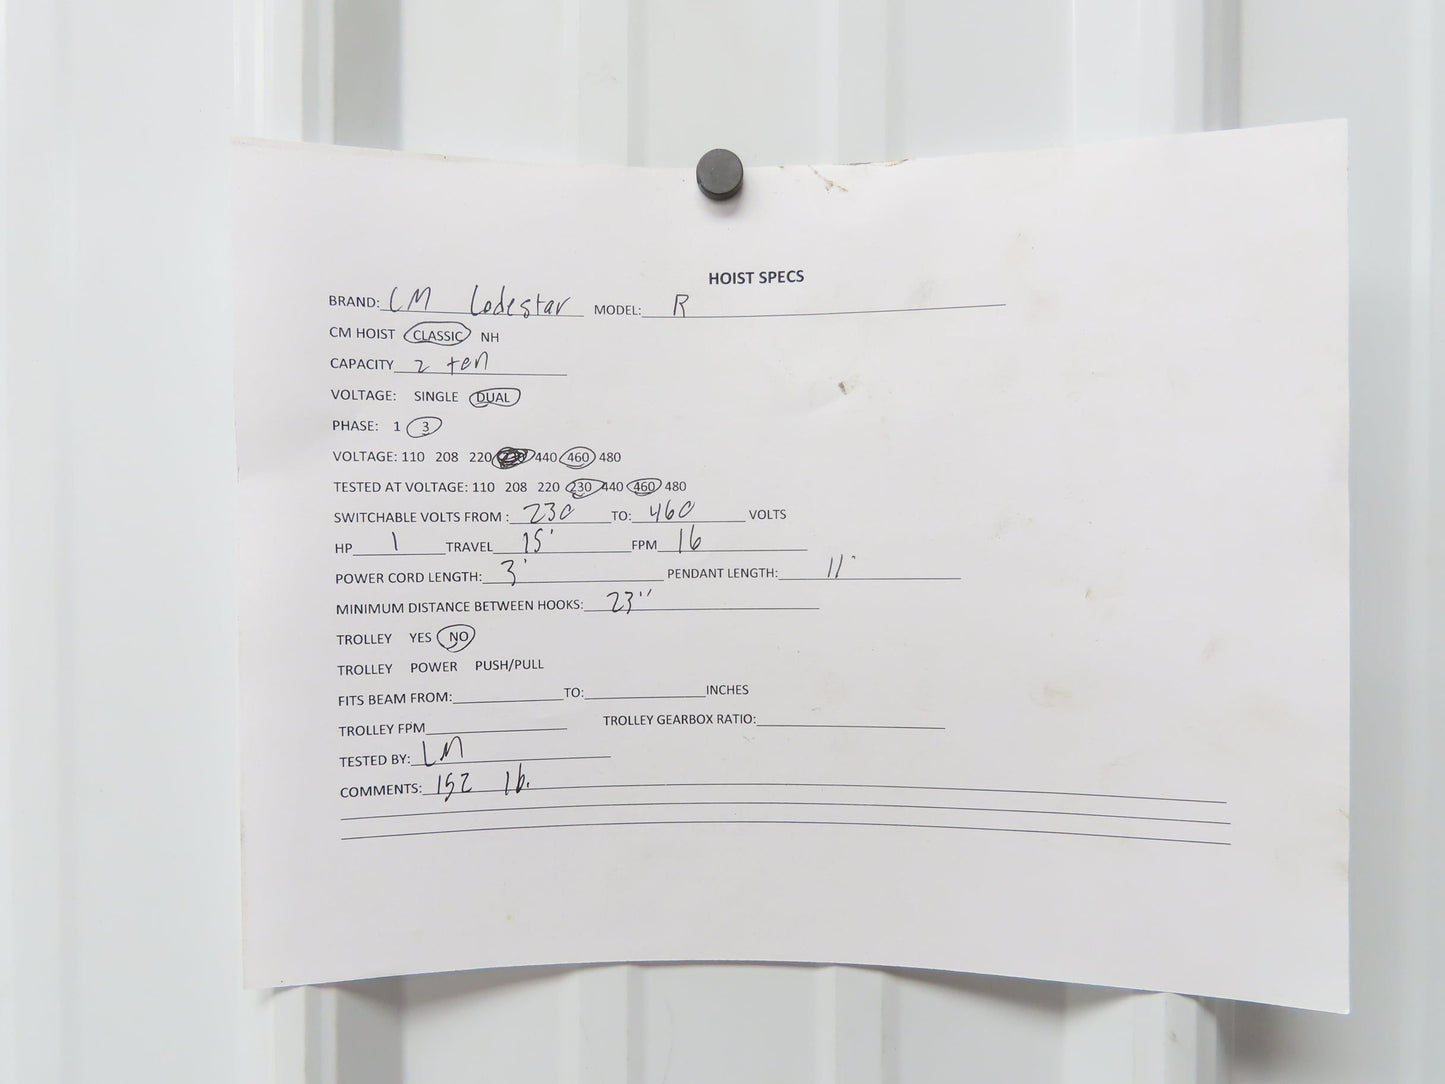 HOIST SPECS
BRAND: CM Lodestar MODEL: R
CM HOIST CLASSIC NH
CAPACITY 2 ton
VOLTAGE: SINGLE DUAL
PHASE: 1 3
VOLTAGE: 110 208 220 230 440 460 480
TESTED AT VOLTAGE: 110 208 220 230 440 460 480
SWITCHABLE VOLTS FROM : 230 TO: 460 VOLTS
HP 1 TRAVEL 15' FPM 16
POWER CORD LENGTH: 3' PENDANT LENGTH: 11'
MINIMUM DISTANCE BETWEEN HOOKS: 23"
TROLLEY YES NO
TROLLEY POWER PUSH/PULL
FITS BEAM FROM: TO: INCHES
TROLLEY FPM TROLLEY GEARBOX RATIO:
TESTED BY: LM
COMMENTS: 152 lb.